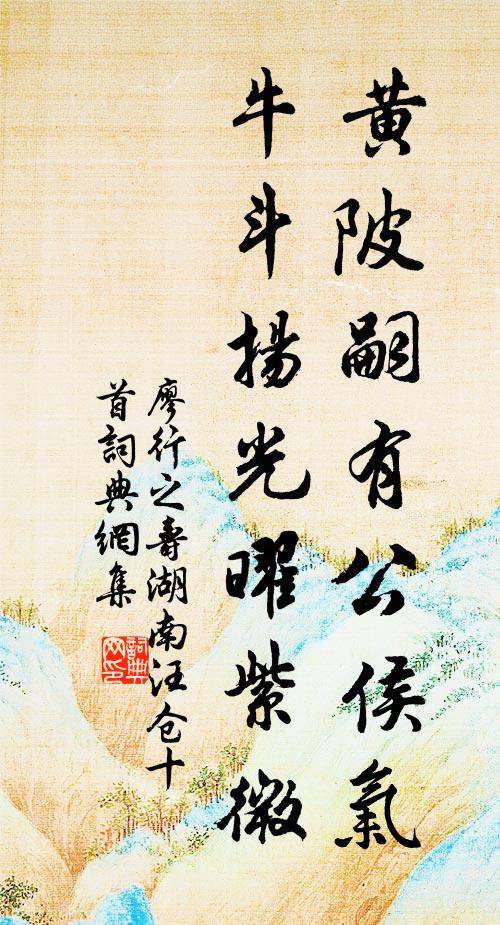 黄陂嗣有公侯氣
牛斗揚光曜紫微
廖行之壽湖南汪仓十
首詞典網集
詞典
网印